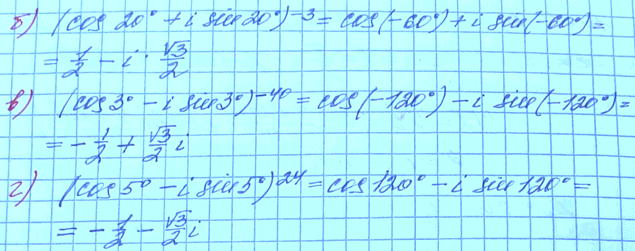 б) (cos 20° + i sin 20°)⁻³ = cos(-60°) + i sin(-60°) =
= 1/2 - i · √3/2
в) (cos 3° - i sin 3°)⁻⁴⁰ = cos(-120°) - i sin(-120°) =
= - 1/2 + √3/2 i
г) (cos 5° - i sin 5°)²⁴ = cos 120° - i sin 120° =
= - 1/2 - √3/2 i